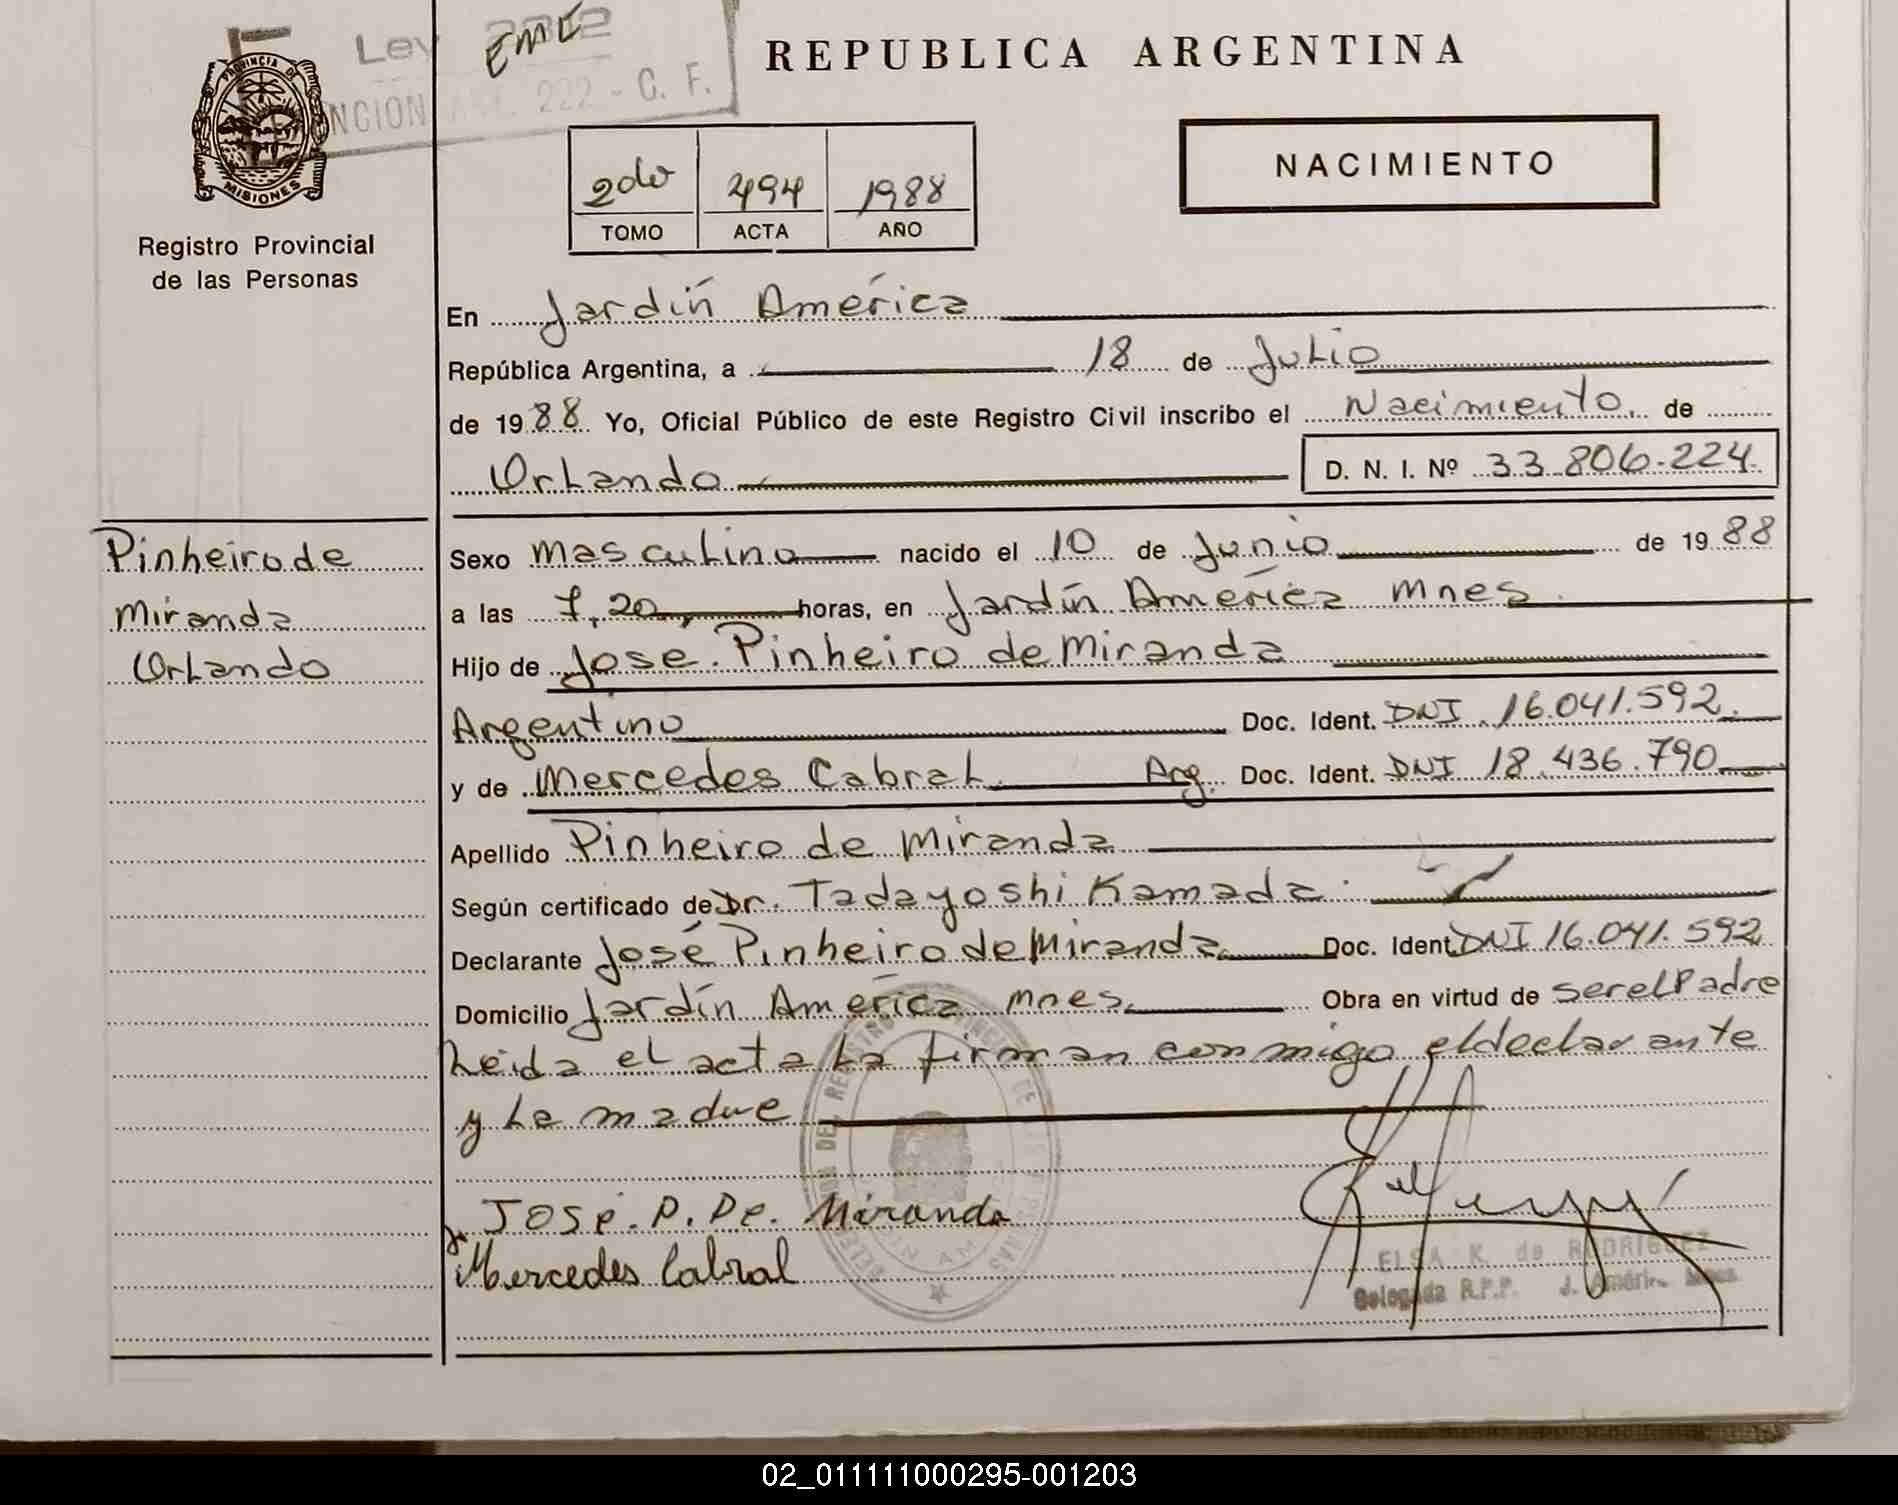 Ley 2302
EME
NCION ART. 222 - C. F.
PROVINCIA DE
MISIONES
Registro Provincial
de las Personas
REPUBLICA ARGENTINA
NACIMIENTO
2do 494 1988
TOMO ACTA AÑO
En Jardín América
República Argentina, a 18 de Julio
de 1988 Yo, Oficial Público de este Registro Civil inscribo el Nacimiento de
Orlando D. N. I. Nº 33.806.224
Pinheiro de
Miranda
Orlando
Sexo masculino nacido el 10 de Junio de 1988
a las 7,20 horas, en Jardín América Mnes.
Hijo de José Pinheiro de Miranda
Argentino Doc. Ident. DNI 16.041.592
y de Mercedes Cabral Arg. Doc. Ident. DNI 18.436.790
Apellido Pinheiro de Miranda
Según certificado de Dr. Tadayoshi Kamada
Declarante José Pinheiro de Miranda Doc. Ident. DNI 16.041.592
Domicilio Jardín América Mnes. Obra en virtud de ser el Padre
Leida el acta la firman conmigo el declarante
y la madre
José. P. De. Miranda
Mercedes Cabral
ELSA K. de RODRIGUEZ
Delegada R.P.P. J. América Mnes.
02_011111000295-001203